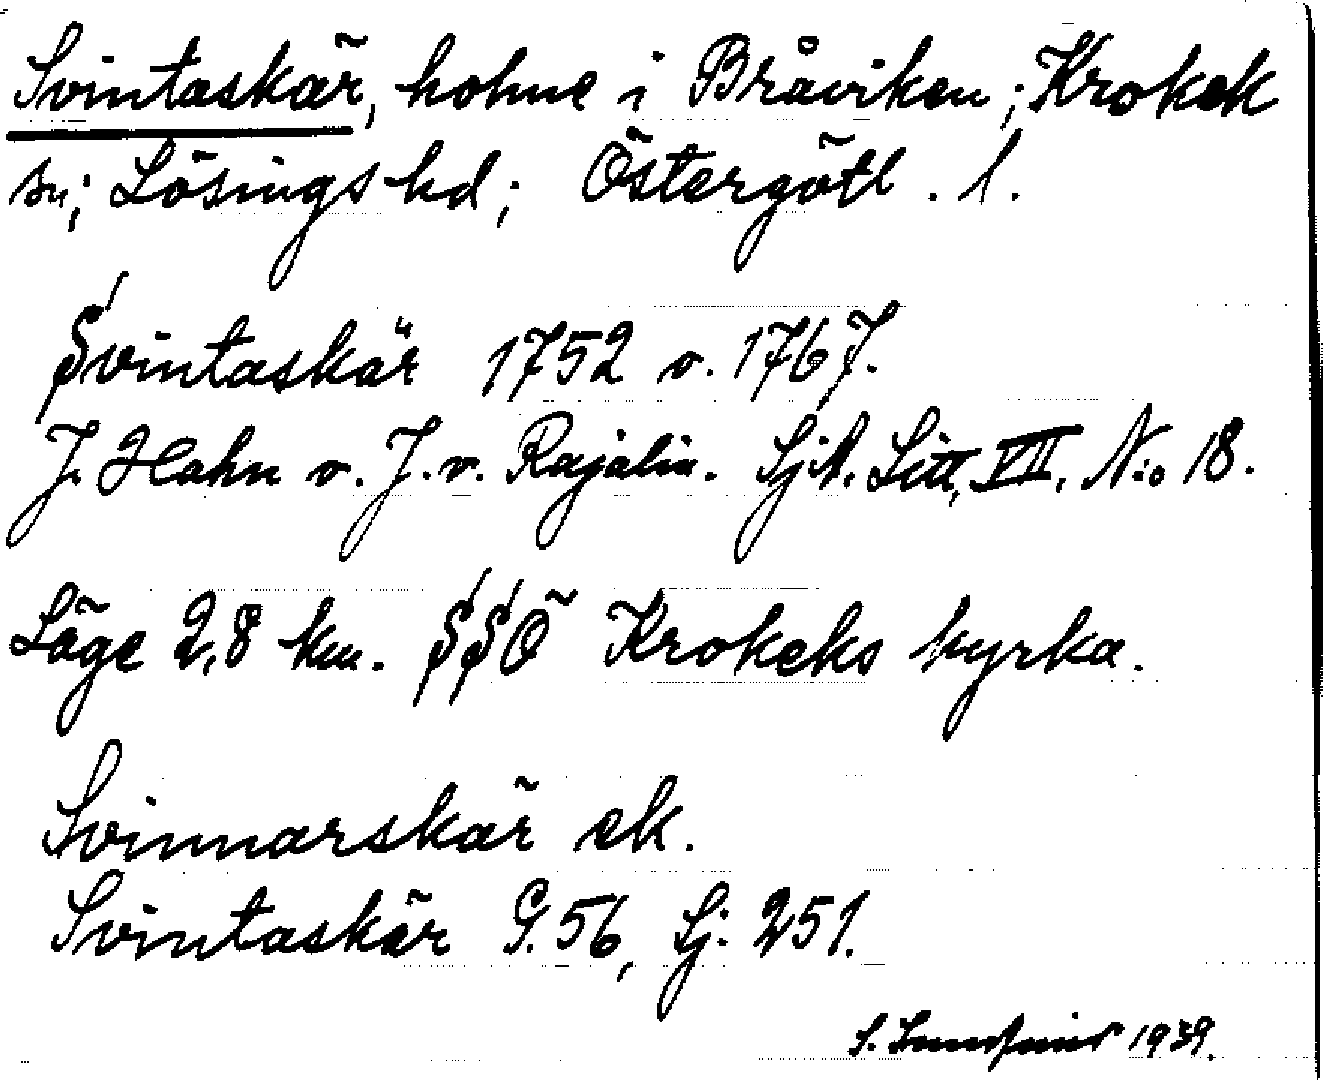 Svintaskär, holme i Bråviken; Krokek
sn; Lösings hd; Östergötl. l.
Svintaskär 1752 o. 1767.
J. Hahn o. J. v. Rajalin. SjA. Litt. VII. N:o 18.
Läge 2,8 km. SSÖ Krokeks kyrka.
Svinnarskär ek.
Svintaskär G. 56, Sj: 251.
S. 1939.